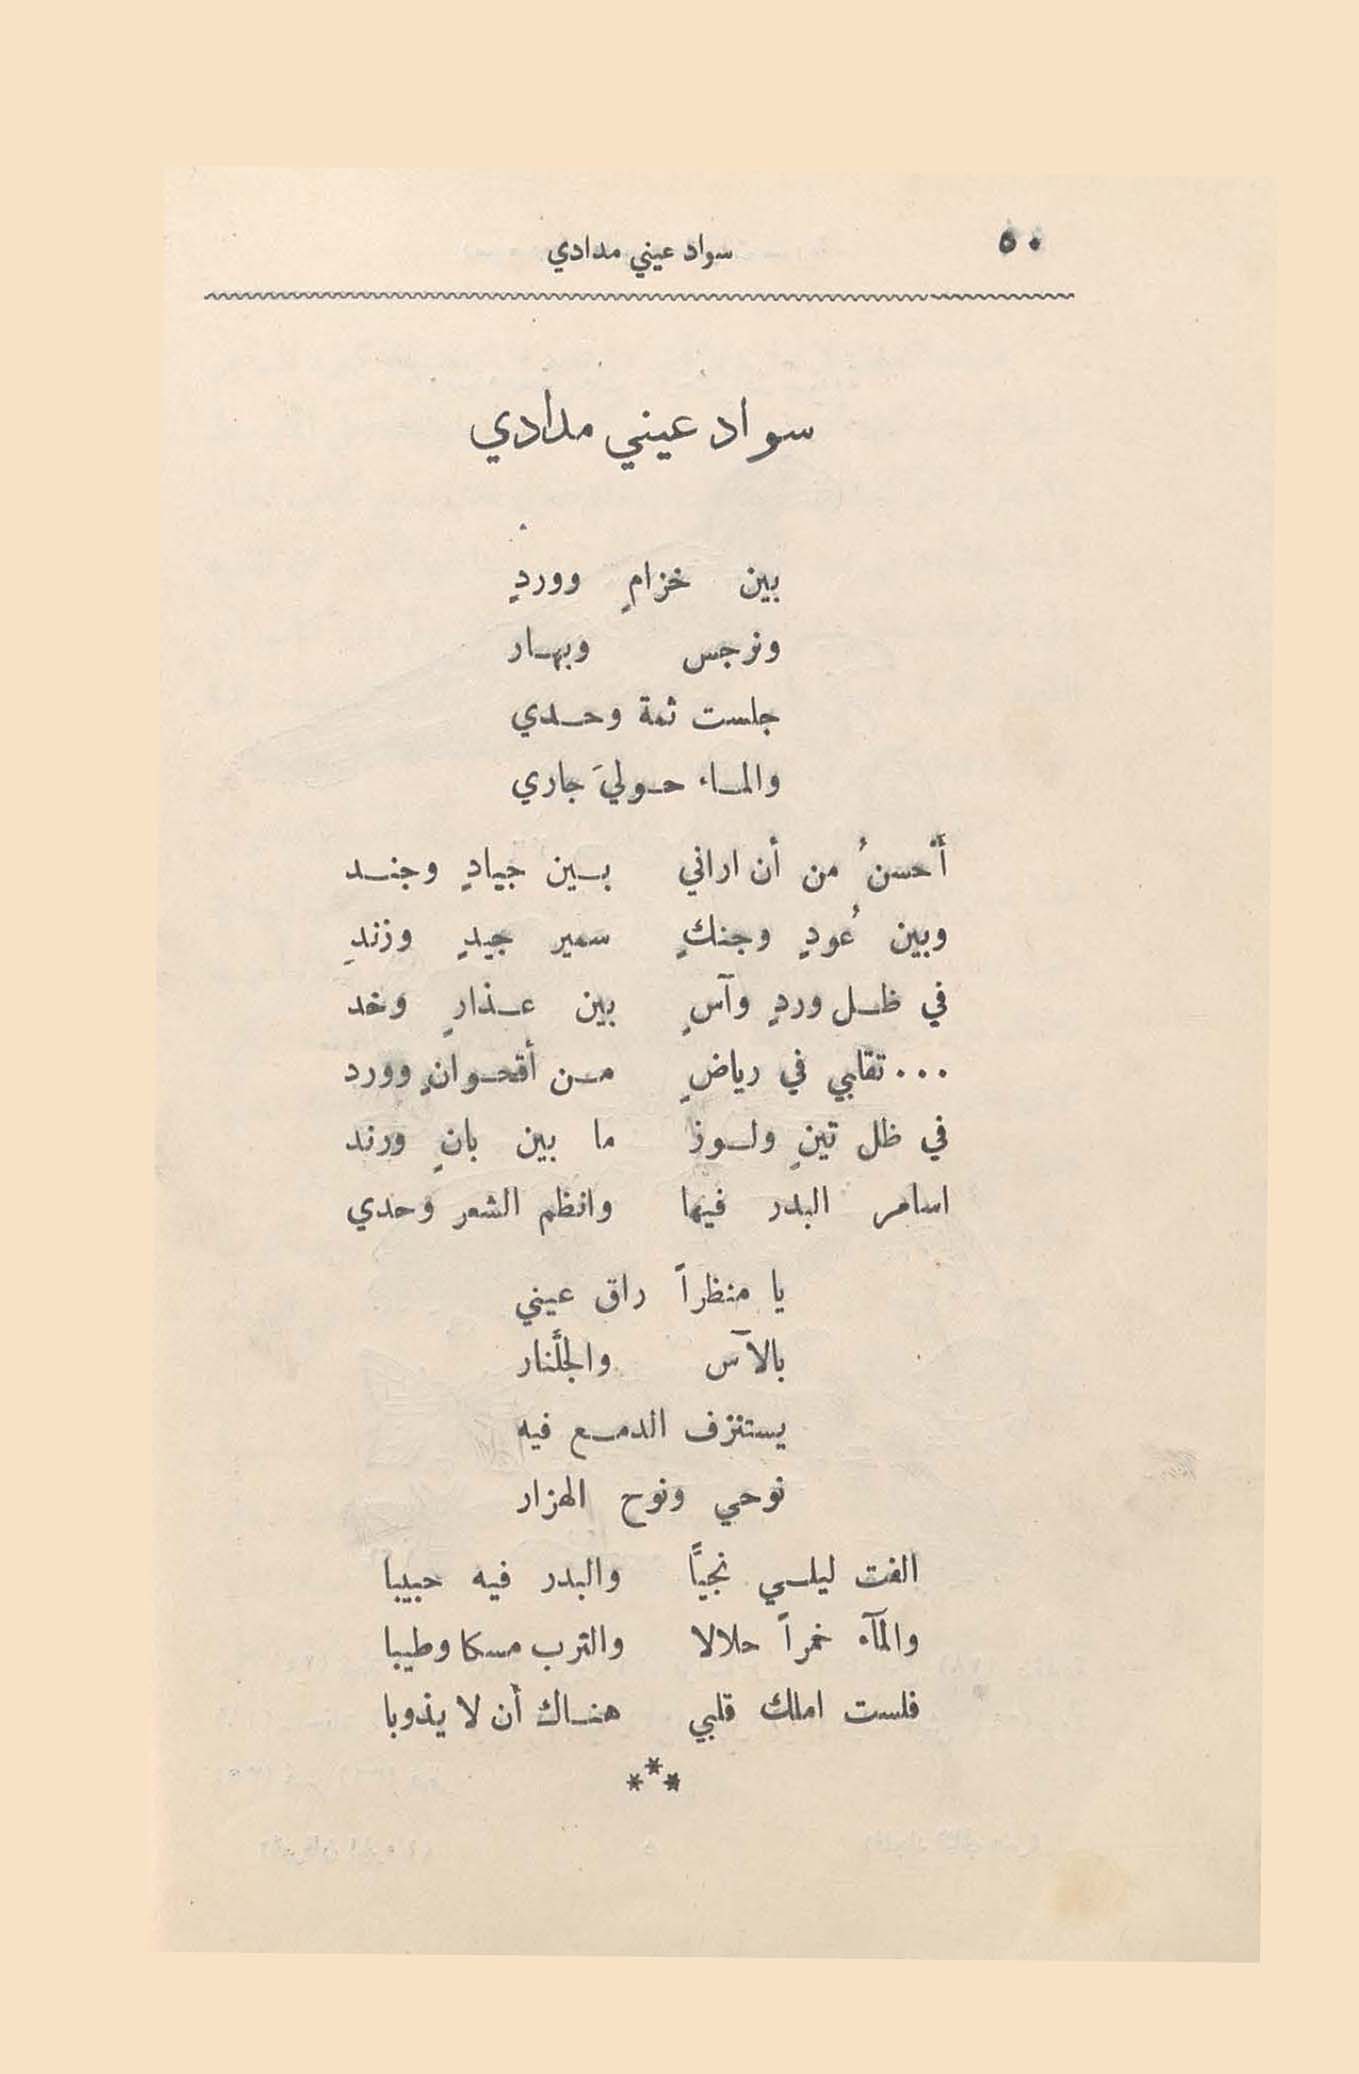 ٥٠
سواد عيني مدادي
سواد عيني مدادي
بين خزامٍ ووردٍ
ونرجس وبهار
جلست ثمة وحدي
والماء حوليَ جاري
أحسنُ من أن اراني بين جيادٍ وجند
وبين عُودٍ وجنكٍ سمير جيدٍ وزندِ
في ظل وردٍ وآسٍ بين عذارٍ وخد
... تقلبي في رياضٍ من أقحوانٍ وورد
في ظل تينٍ ولوز ما بين بانٍ ورند
اسامر البدر فيها وانظم الشعر وحدي
يا منظراً راق عيني
بالآس والجلَّنار
يستنزف الدمع فيه
نوحي ونوح الهزار
الفت ليلي نجيًا والبدر فيه حبيبا
والمآء خمراً حلالا والترب مسكا وطيبا
فلست املك قلبي هناك أن لا يذوبا
***